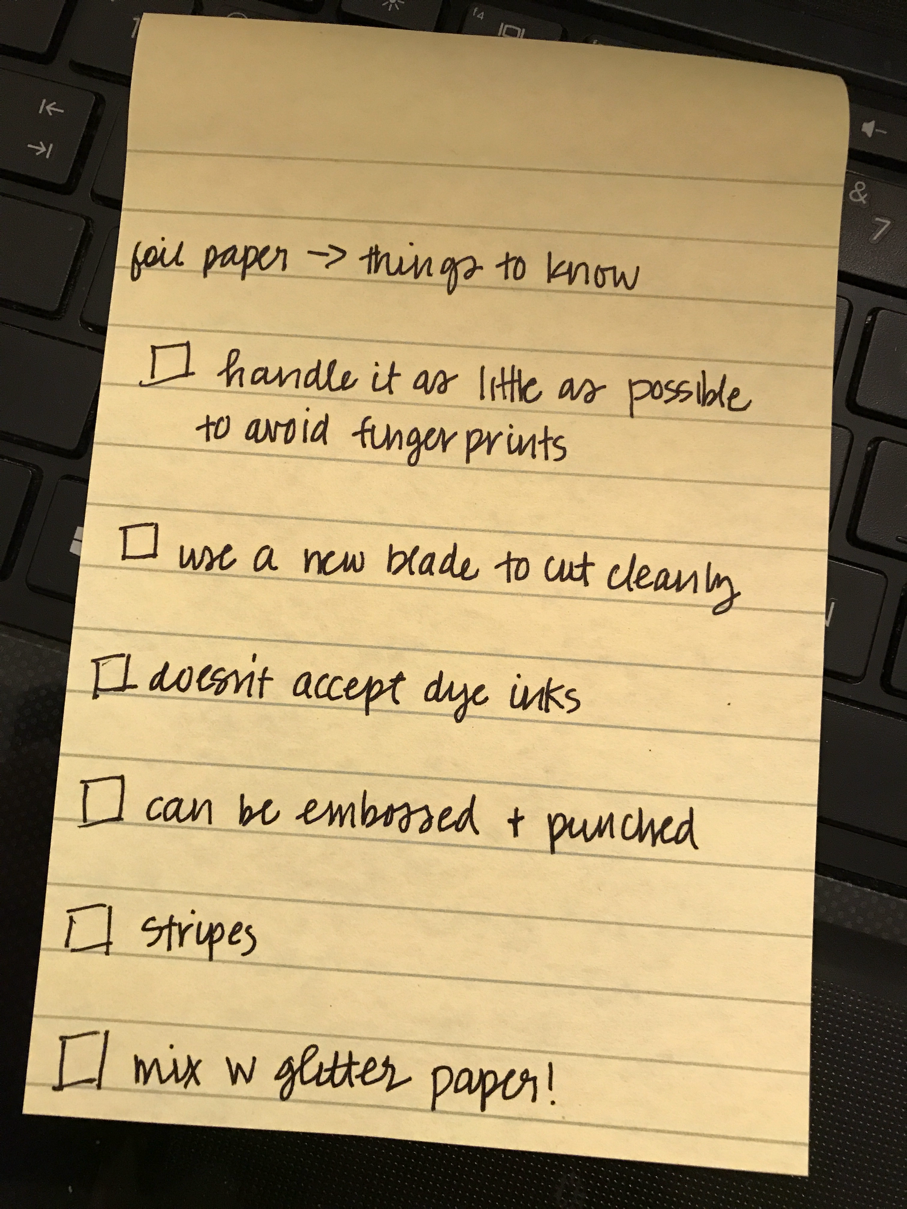 foil paper → things to know
☐ handle it as little as possible
to avoid fingerprints
☐ use a new blade to cut cleanly
☐ doesn't accept dye inks
☐ can be embossed + punched
☐ stripes
☐ mix w glitter paper!
&
7